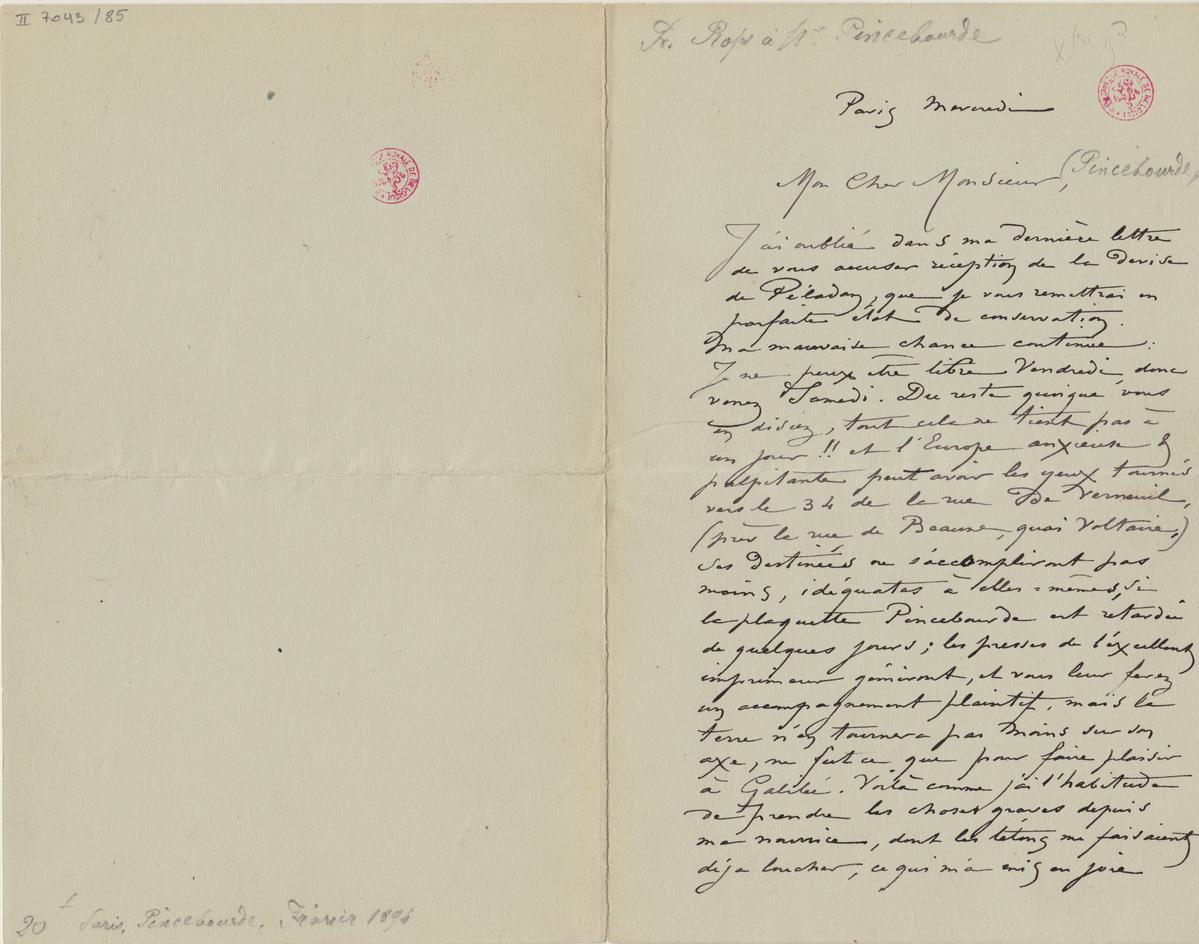 II 7043 / 85
BIBLIOTHÈQUE ROYALE DE BELGIQUE
20f Paris, Pincebourde. Février 1894
F. Rops à Mr Pincebourde
BIBLIOTHÈQUE ROYALE DE BELGIQUE
Paris Mercredi
Mon Cher Monsieur, (Pincebourde)
J'ai oublié dans ma dernière lettre
de vous accuser réception de la Devise
de Péladan, que je vous remettrai en
parfaite état de conservation.
Ma mauvaise chance continue :
Je ne peux être libre Vendredi donc
venez Samedi. Du reste quoique vous
en disiez, tout cela ne tient pas à
un jour !! et l'Europe anxieuse &
palpitante peut avoir les yeux tournés
vers le 34 de la rue De Verneuil,
(près la rue de Beaune, quai Voltaire,)
ses destinées ne s'accompliront pas
moins, idéquates à elles-mêmes, si
la plaquette Pincebourde est retardée
de quelques jours ; les presses de l'excellent
imprimeur gémiront, et vous leur ferez
un accompagnement plaintif, mais la
terre n'en tournera pas moins sur son
axe, ne fut ce que pour faire plaisir
à Galilée. Voilà comme j'ai l'habitude
de prendre les choses graves depuis
ma nourrice, dont les tétons me faisaient
déja loucher, ce qui m'a mis en joie